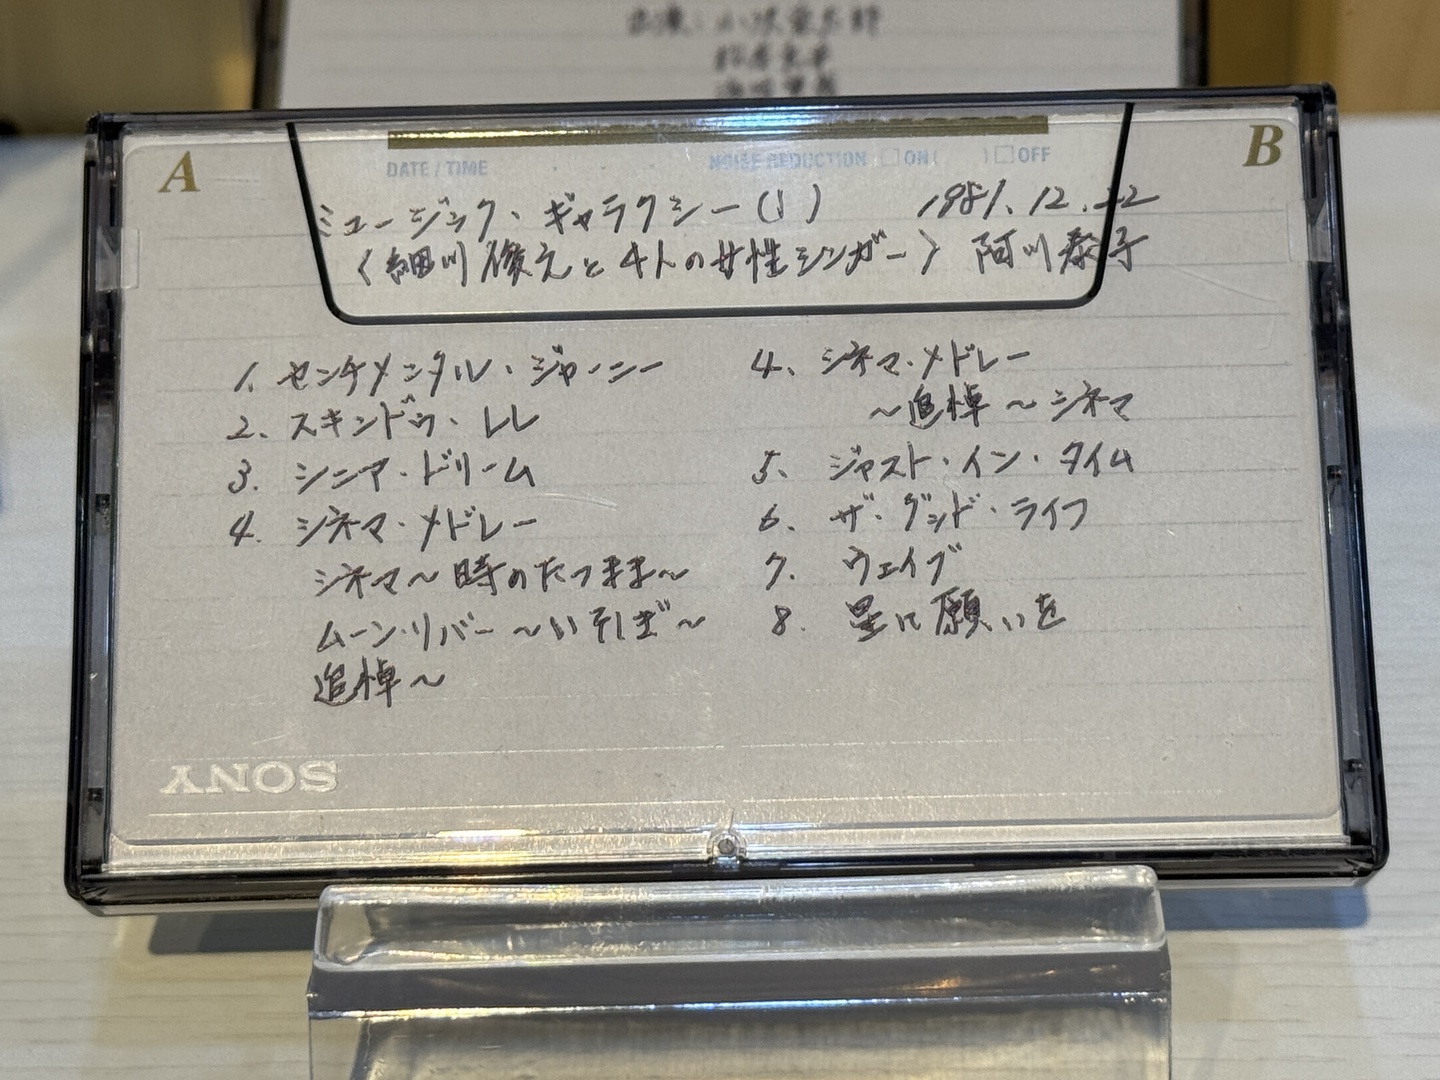 A
B
DATE / TIME
NOISE REDUCTION □ON( )□OFF
ミュージック・ギャラクシー(1) 1981.12.22
〈細川俊之と4人の女性シンガー〉 阿川泰子
1. センチメンタル・ジャーニー
2. スキンドゥ・レレ
3. シニア・ドリーム
4. シネマ・メドレー
シネマ～時のたつまま～
ムーン・リバー～いそしぎ～
追悼～
4. シネマ・メドレー
～追悼～シネマ
5. ジャスト・イン・タイム
6. ザ・グッド・ライフ
7. ウェイブ
8. 星に願いを
SONY